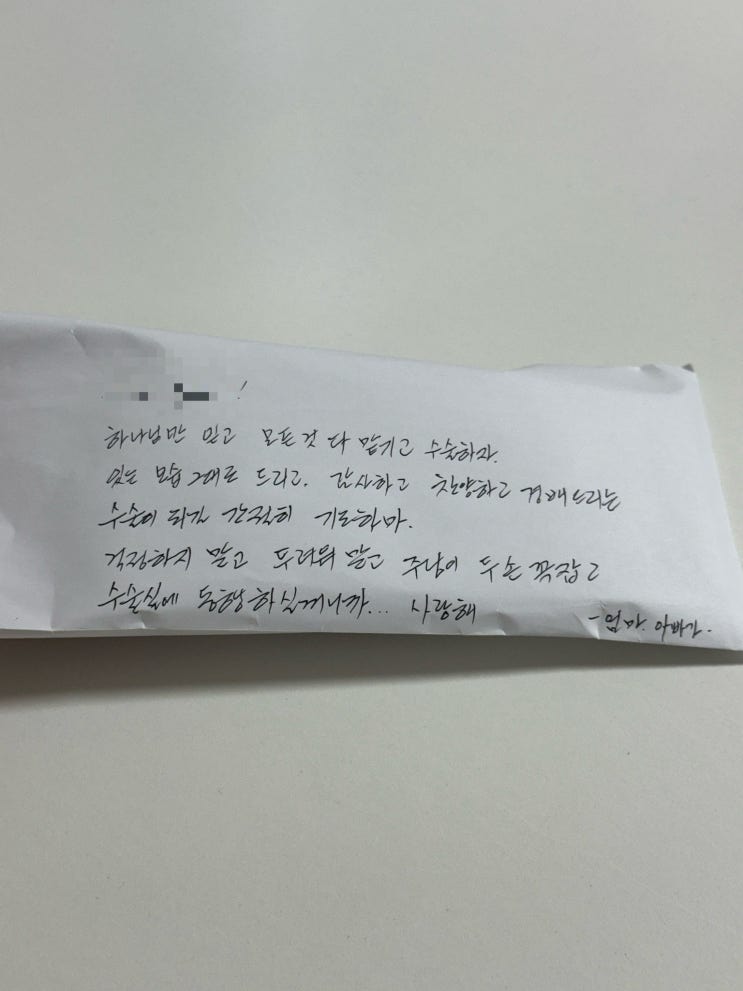 !
하나님만 믿고 모든것 다 맡기고 수술하자.
있는 모습 그대로 드리고. 감사하고 찬양하고 경배드리는
수술이 되길 간절히 기도하마.
걱정하지 말고 두려워 말고 주님이 두손 꼭잡고
수술실에 동행하실꺼니까... 사랑해
- 엄마. 아빠가.